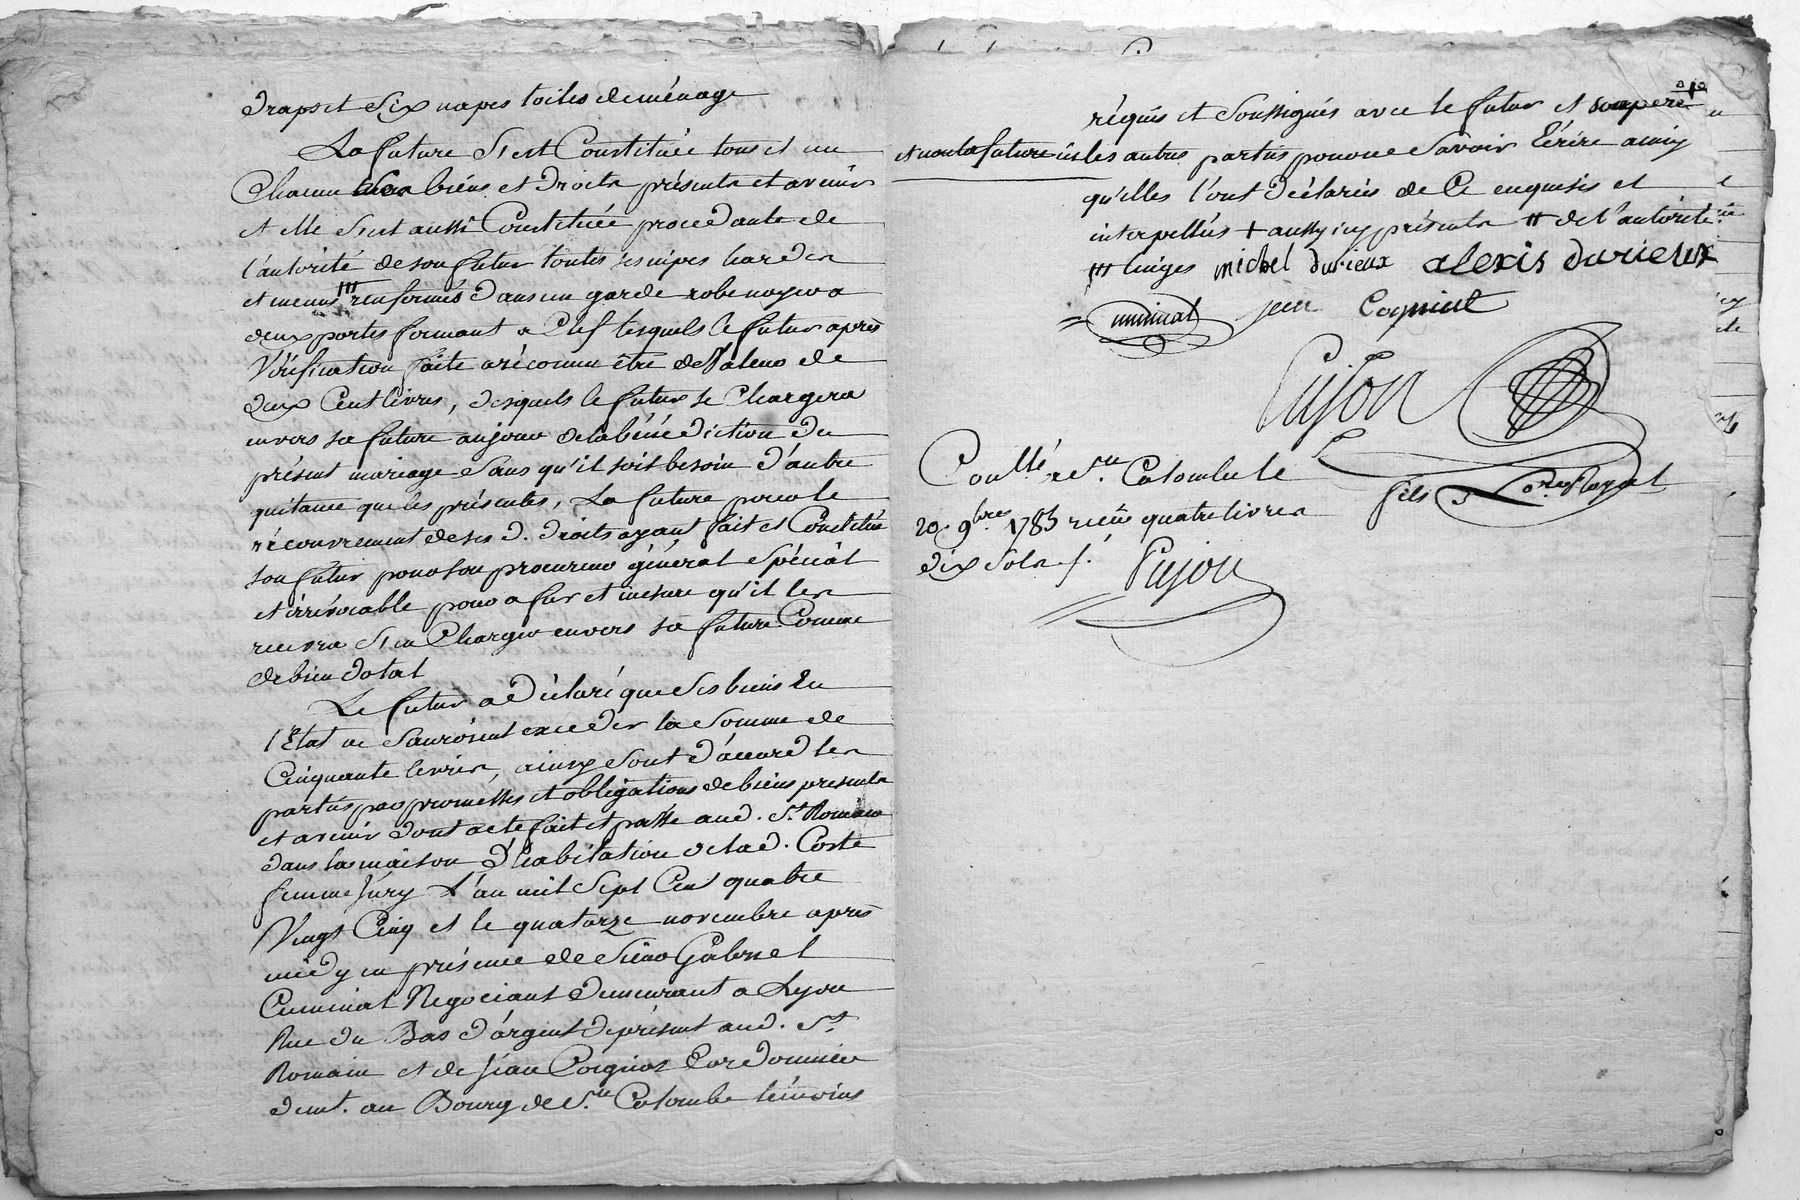 draps et six napes toiles de ménage
La future s'est Constituée tous et un
Chacun ses biens et droits présents et avenir
et elle s'est aussi Constituée procedante de
l'autorité de son futur toutes ses nipes hardes
et menus /// renfermés dans un garde robe noyer a
deux portes fermant a Clef lesquels le futur après
Vérification faite a réconnu être de Valeur de
deux Cent livres, desquels le futur se Chargera
envers sa future au jour de la bénédiction du
présent mariage sans qu'il soit besoin d'autre
quitance que les présentes, La future pour le
récouvrement de ses d. droits ayant fait et Constitué
son futur pour son procureur général spécial
et irrévocable pour a fur et mésure qu'il les
recevra s'en Charger envers sa future Comme
de bien dotal
Le futur a déclaré que ses biens En
l'Etat ne sauroient exceder la somme de
Cinquante livres, ainsy sont d'accord les
parties par promesses et obligations de biens presents
et avenir dont acte fait et passé aud. St. Romain
dans la maison d'habitation de lad. Coste
femme Jury L'an mil sept Cent quatre
Vingt Cinq et le quatorze novembre après
midy en présence de sieur Gabriel
Cuminal Négociant demeurant a Lyon
Rue du Bas d'argent de présent aud. St.
Romain et de Jean Coignet Cordonnier
demt. au Bourg de Ste. Colombe témoins
réquis et soussignés avec le futur et son pere
et non la future ni les autres parties pour ne savoir Ecrire ainsy
qu'elles l'ont déclarées de Ce enquises et
interpellées + aussy icy présents // de l'autorité
/// linges michel durieux alexis durieux
cuminal jean Cogniet
Pujon
fils
Conllé. a Ste. Colombe le
20. 9bres 1785 reçu quatre livres
dix sols /.
Pujon